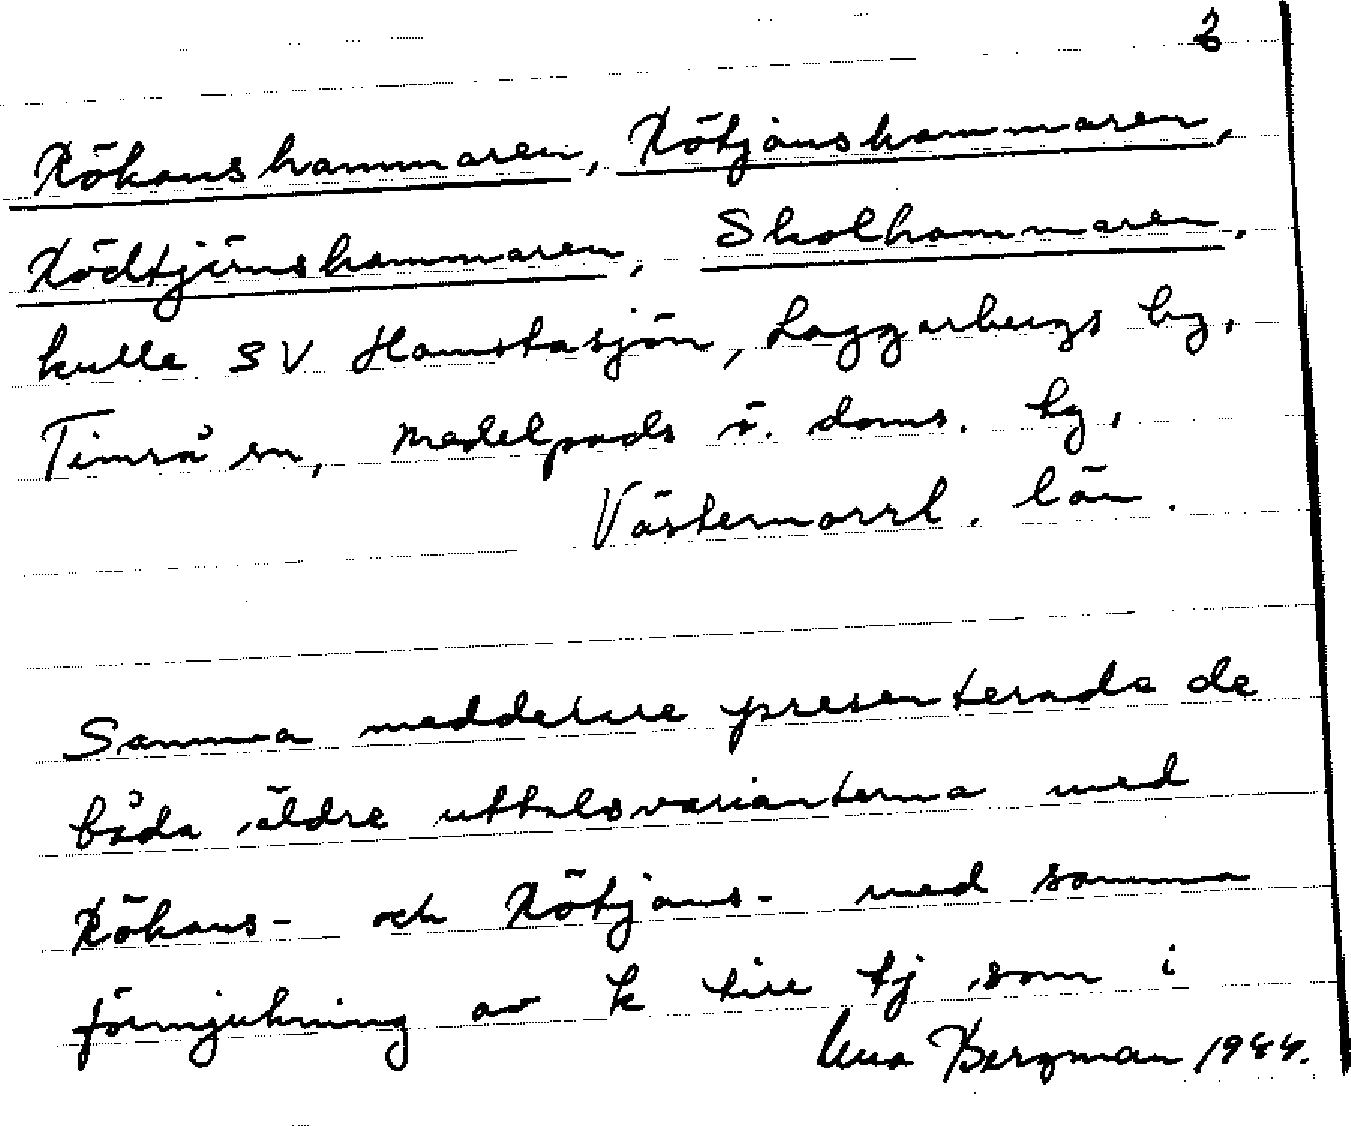 2
Rökanshammaren, Rötjanshammaren,
Rödtjärnshammaren, Skolhammaren,
kulle SV Hamstasjön, Laggarbergs by,
Timrå sn, Medelpads ö. doms. tg,
Västernorrl. län.
Samma meddelare presenterade de
båda äldre uttalsvarianterna med
Rökans- och Rötjans- med samma
förmjukning av k till tj som i
Bergman 1944.